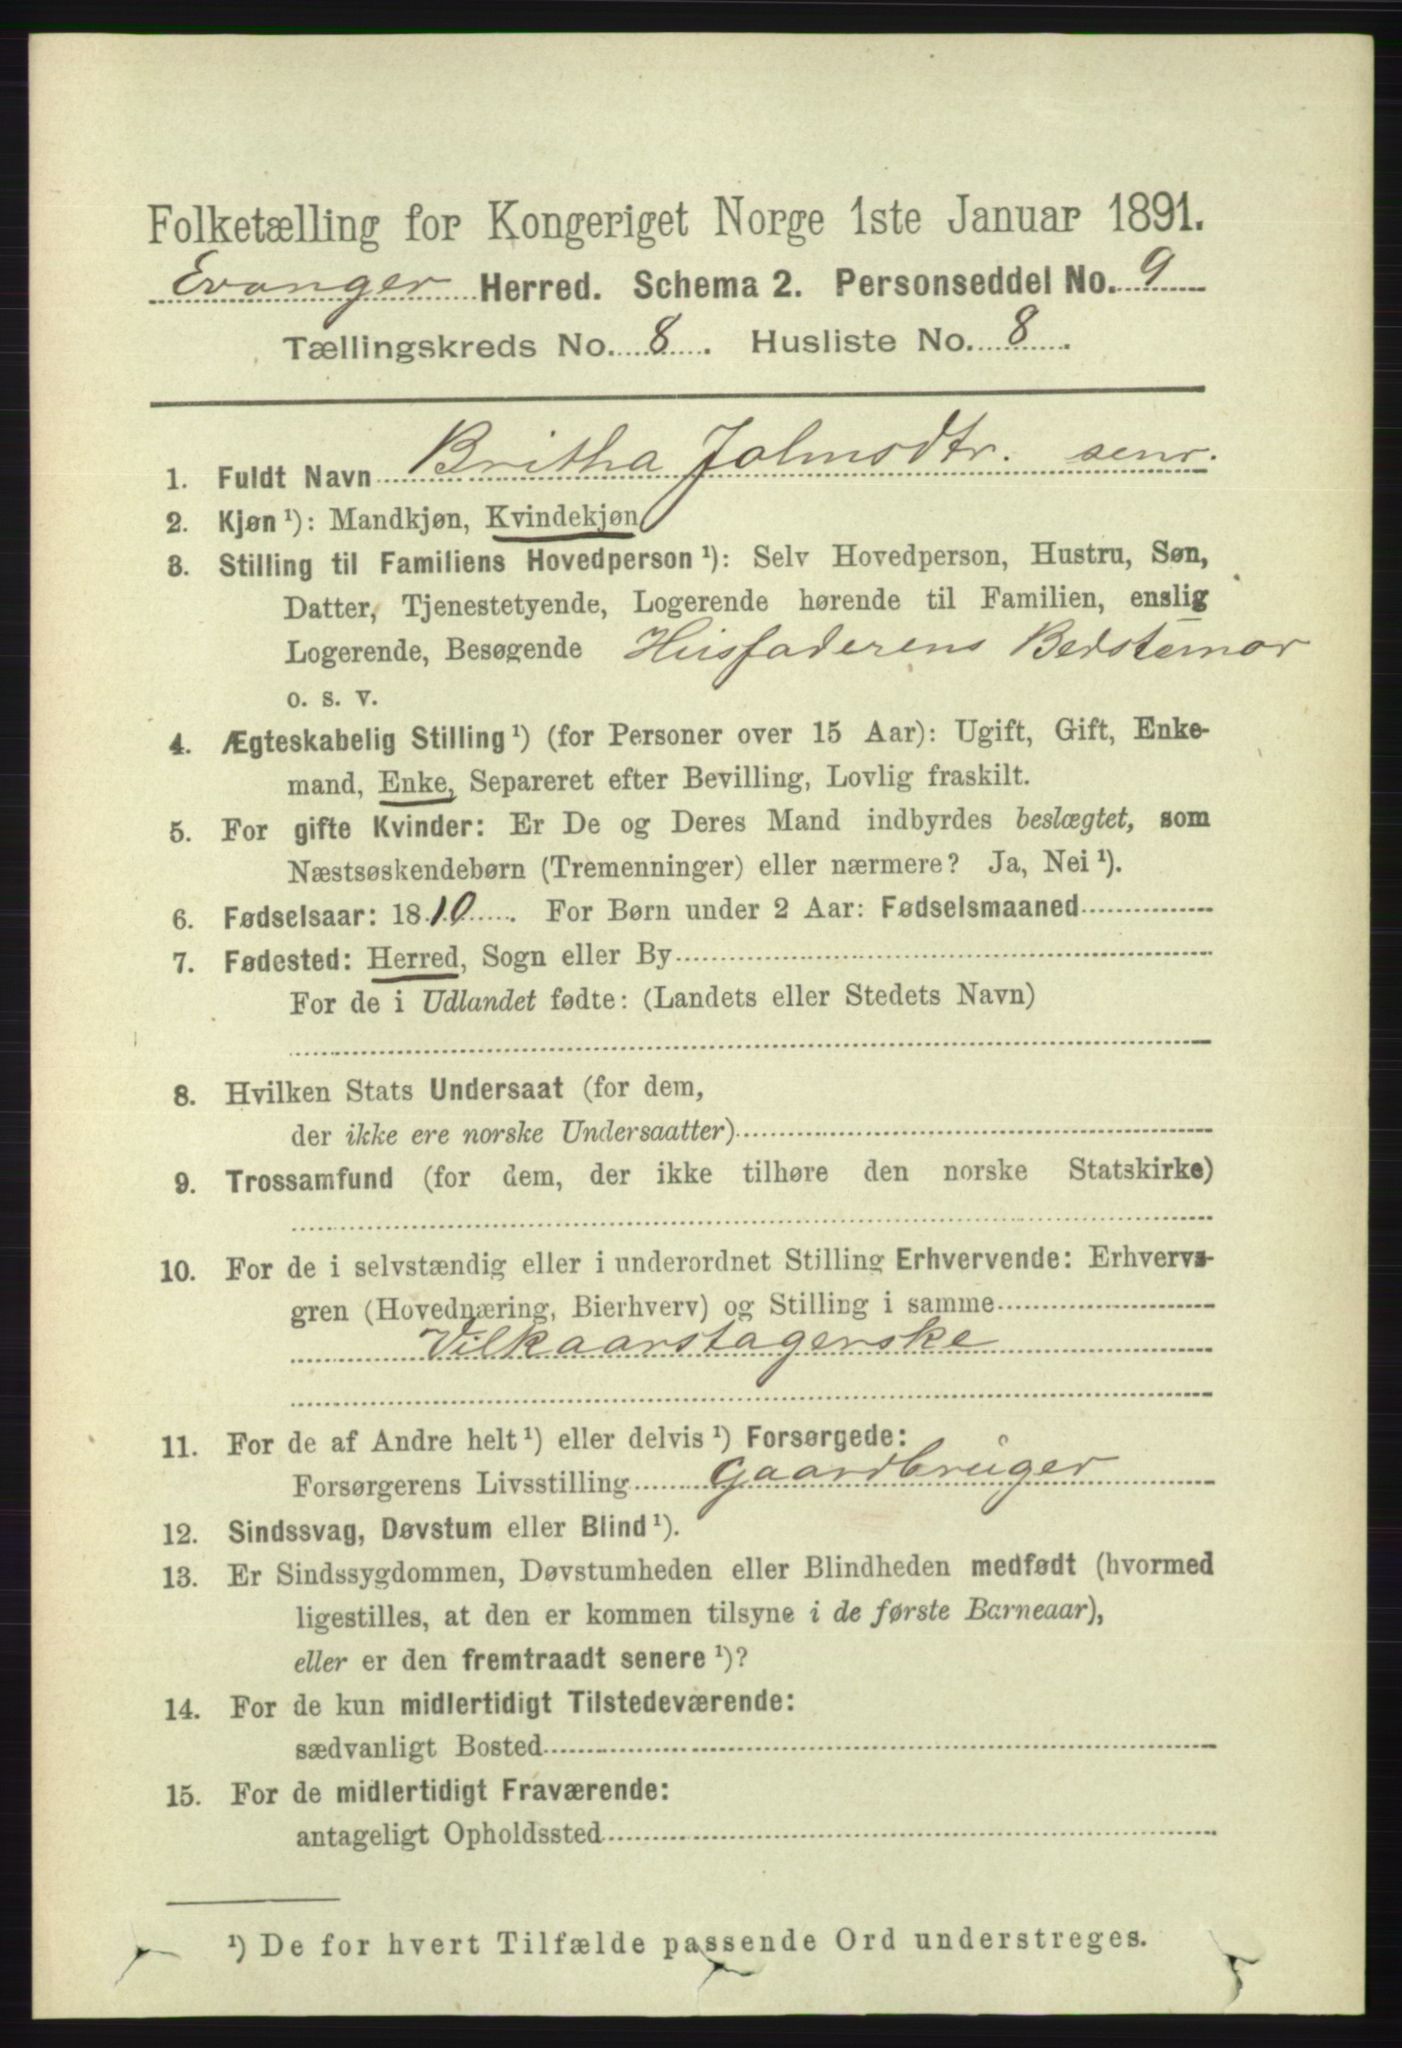 Folketælling for Kongeriget Norge 1ste Januar 1891.
Evanger Herred. Schema 2. Personseddel No. 9
Tællingskreds No. 8. Husliste No. 8.
1. Fuldt Navn Britha Johnsdtr. senr.
2. Kjøn¹): Mandkjøn, Kvindekjøn
3. Stilling til Familiens Hovedperson¹): Selv Hovedperson, Hustru, Søn,
Datter, Tjenestetyende, Logerende hørende til Familien, enslig
Logerende, Besøgende Husfaderens Bedstemor
o. s. v.
4. Ægteskabelig Stilling¹) (for Personer over 15 Aar): Ugift, Gift, Enke-
mand, Enke, Separeret efter Bevilling, Lovlig fraskilt.
5. For gifte Kvinder: Er De og Deres Mand indbyrdes beslægtet, som
Næstsøskendebørn (Tremenninger) eller nærmere? Ja, Nei¹).
6. Fødselsaar: 1810. For Børn under 2 Aar: Fødselsmaaned
7. Fødested: Herred, Sogn eller By
For de i Udlandet fødte: (Landets eller Stedets Navn)
8. Hvilken Stats Undersaat (for dem,
der ikke ere norske Undersaatter)
9. Trossamfund (for dem, der ikke tilhøre den norske Statskirke)
10. For de i selvstændig eller i underordnet Stilling Erhvervende: Erhvervs-
gren (Hovednæring, Bierhverv) og Stilling i samme
Vilkaarstagerske
11. For de af Andre helt¹) eller delvis¹) Forsørgede:
Forsørgerens Livsstilling Gaardbruger
12. Sindssvag, Døvstum eller Blind¹).
13. Er Sindssygdommen, Døvstumheden eller Blindheden medfødt (hvormed
ligestilles, at den er kommen tilsyne i de første Barneaar),
eller er den fremtraadt senere¹)?
14. For de kun midlertidigt Tilstedeværende:
sædvanligt Bosted
15. For de midlertidigt Fraværende:
antageligt Opholdssted
¹) De for hvert Tilfælde passende Ord understreges.